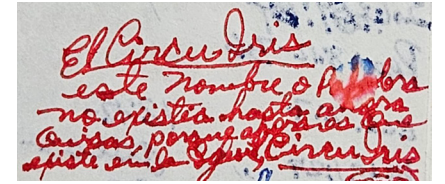 El CircuIris
este nombre o Palabra
no existea hasta ahora
quizas, porque
existe en la CircuIris